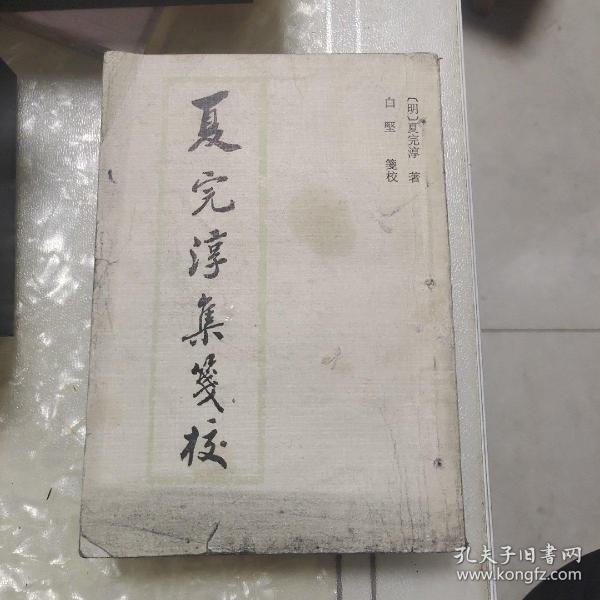 〔明〕夏完淳 著
白坚 箋校
夏完淳集箋校
孔夫子旧書网
www.kongfz.com